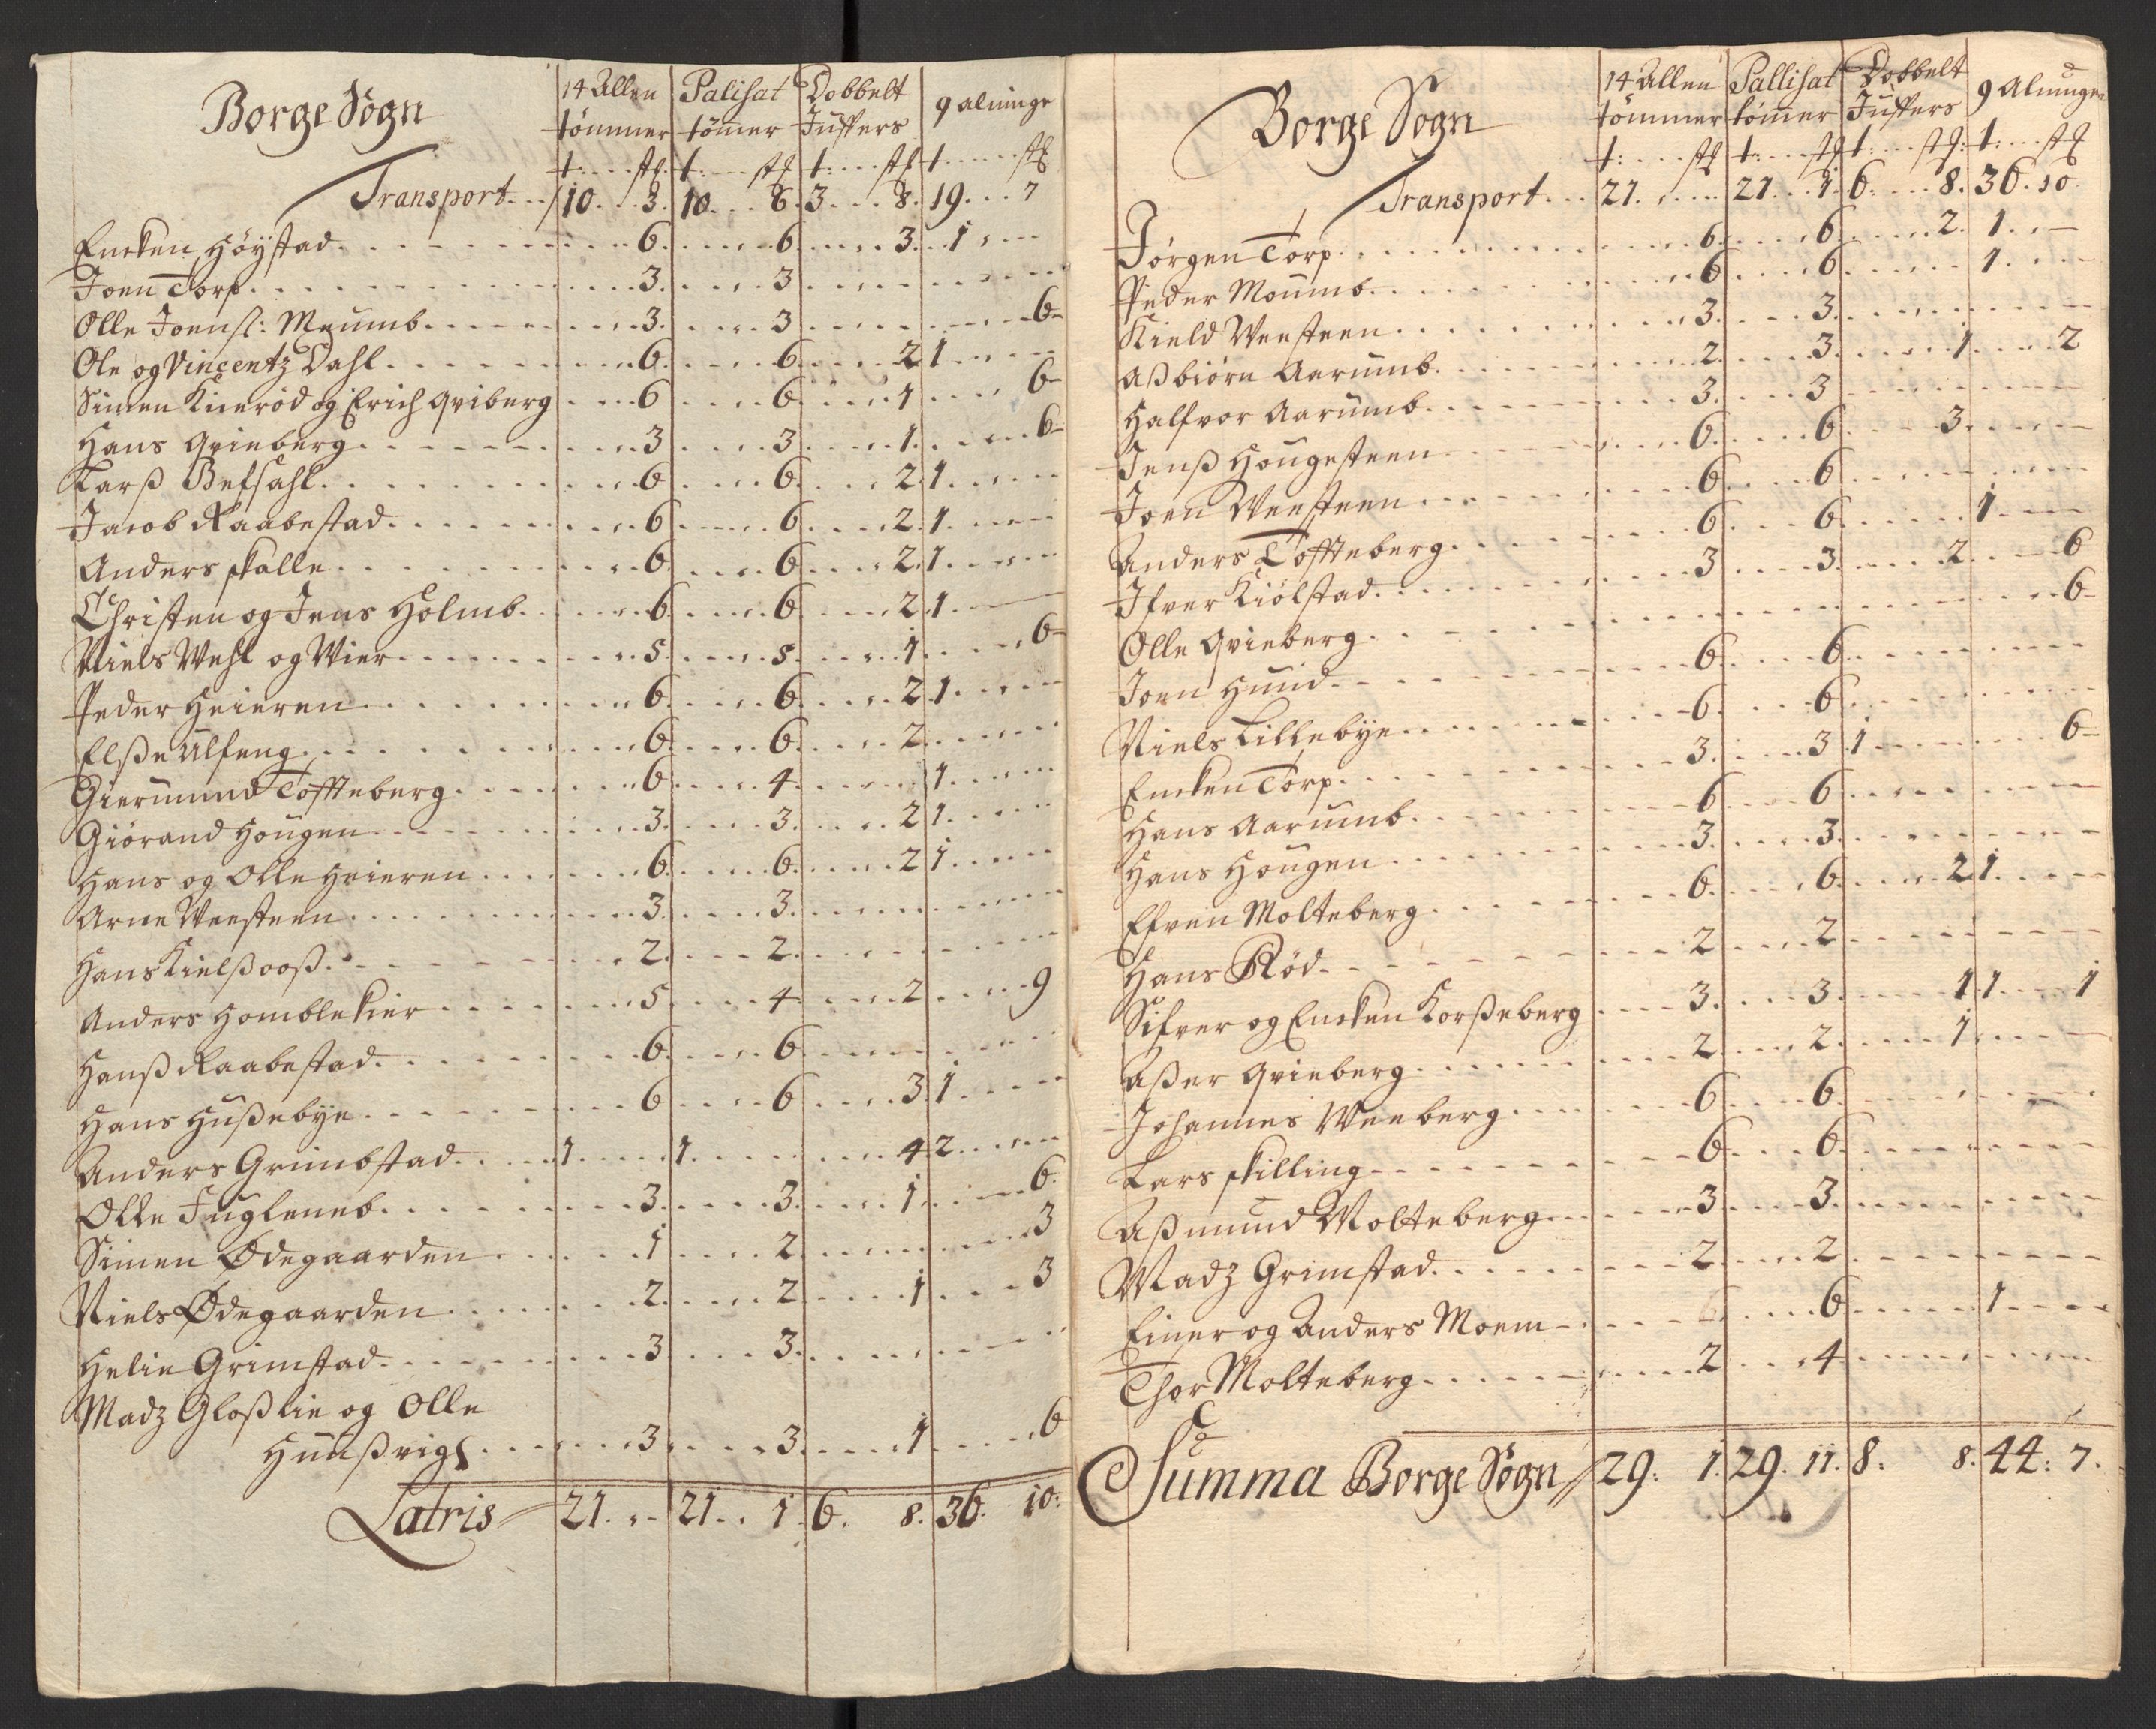 Borge Sogn
14 Allen Palisat Dobbelt 9 alninge
tömmer tömer Juffers
t: stk t: stk t: stk t stk
Transport 10. 3. 10. 6. 3. 8. 19. 7
Encken Höystad 6. 6. 3. 1
Joen Torp 3. 3
Olle Joensl: Meumb 3. 3 6
Ole og Vincentz Dahl 6. 6. 2 1
Simen Kierød og Erich Qviberg 6 6. 1 6
Hans Qvieberg 3 3. 1. 6
Larß Befsahl 6 6. 2. 1
Jacob Raabestad 6 6. 2. 1
Anders skalle 6. 6. 2. 1
Christen og Jens Holmb 6. 6. 2. 1
Niels Wehl og Wier 5. 5. 1 6
Peder Heieren 6. 6. 2. 1
Elße Ulfeng 6. 6. 2
Giermund Toffteberg 6 4 1
Giörand Hougen 3. 3. 2 1
Hans og Olle Heieren 6. 6. 2 1
Arne Weesteen 3. 3.
Hans Kielßooß 2. 2
Anders Homblekier 5 4 2 9
Hanß Raabestad 6. 6
Hans Hußebye 6 6 3 1
Anders Grimbstad 1 1 4 2
Olle Fugleneb 3. 3. 1 6
Simen Ødegaarden 1 2 3
Niels Ødegaarden 2. 2 1 3
Helie Grimstad 3 3
Madz Gloßlie og Olle
Hunßrigs 3 3. 1 6
Latris 21. 21. 1. 6. 8. 36. 10:
Borge Sogn
14 Allen Pallisat Dobbelt 9 Alninge
tömmer tömer Juffers
t: stk t: stk t: stk: t: stk
Transport 21. 21. 1. 6. 8. 36. 10
Jörgen Torp 6. 6 2. 1
Peder Moumb 6 6 1
Kield Weesteen 3. 3.
Aßbiörn Aarumb 2. 3. 1 2
Halfvor Aarumb 3. 3
Jenß Hougesteen 6. 6 3.
Joen Weesteen 6 6
Anders Toffteberg 6 6. 1
Ifver Kiölstad 3 3. 2 6
Olle Qvieberg 6
Joen Hund 6. 6.
Niels Lillebye 6. 6
Encken Torp 3. 3 1 6
Hans Aarumb 6 6
Hans Hougen 3. 3.
Efven Molteberg 6. 6. 2 1
Hans Röd 2 2
Sifver og Encken Korßeberg 3. 3. 1 1 1
Aßer Qvieberg 2 2. 1
Johannes Weeberg 6 6
Lars skilling 6 6
Aßmund Molteberg 3 3.
Madz Grimstad 2 2
Einer og Anders Moem 6 6 1
Thor Molteberg 2 4
Summa Borge Sogn 29: 1. 29. 11. 8. 8. 44: 7.